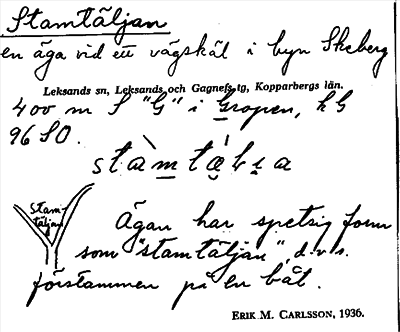 Stamtäljan
en äga vid ett vägskäl i byn Skeberg
Leksands sn, Leksands och Gagnefs tg, Kopparbergs län.
400 m S "G" i Gropen, kG
96 SO.
Stam-
täljan
Ägan har spetsig form
som "stamtäljan", d.v.s.
förstammen på en båt.
ERIK M. CARLSSON, 1936.